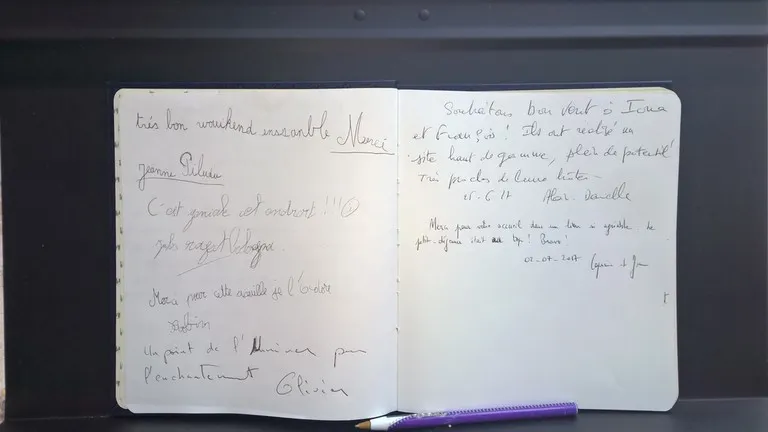 très bon wouikend enssanble Merci
Jeanne
C'est géniale cet andrort !!!
jules
Merci pour cette
Robin
Un point de l'Univers pour
l'enchantement Olivier
Souhaitons bon vent à Irma
et François ! Ils ont réalisé un
site haut de gamme, plein de potentiel
Très proches de leurs hôtes -
25-6-17 Alain - Danielle
Merci pour votre accueil dans un lieu si agréable. Le
petit-déjeuner était au top ! Bravo !
02-07-2017